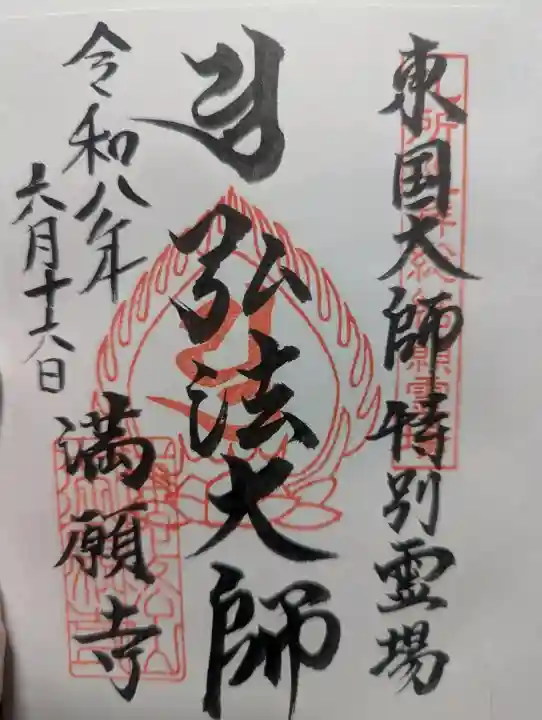 東国大師特別霊場
弘法大師
令和八年
六月十六日
満願寺